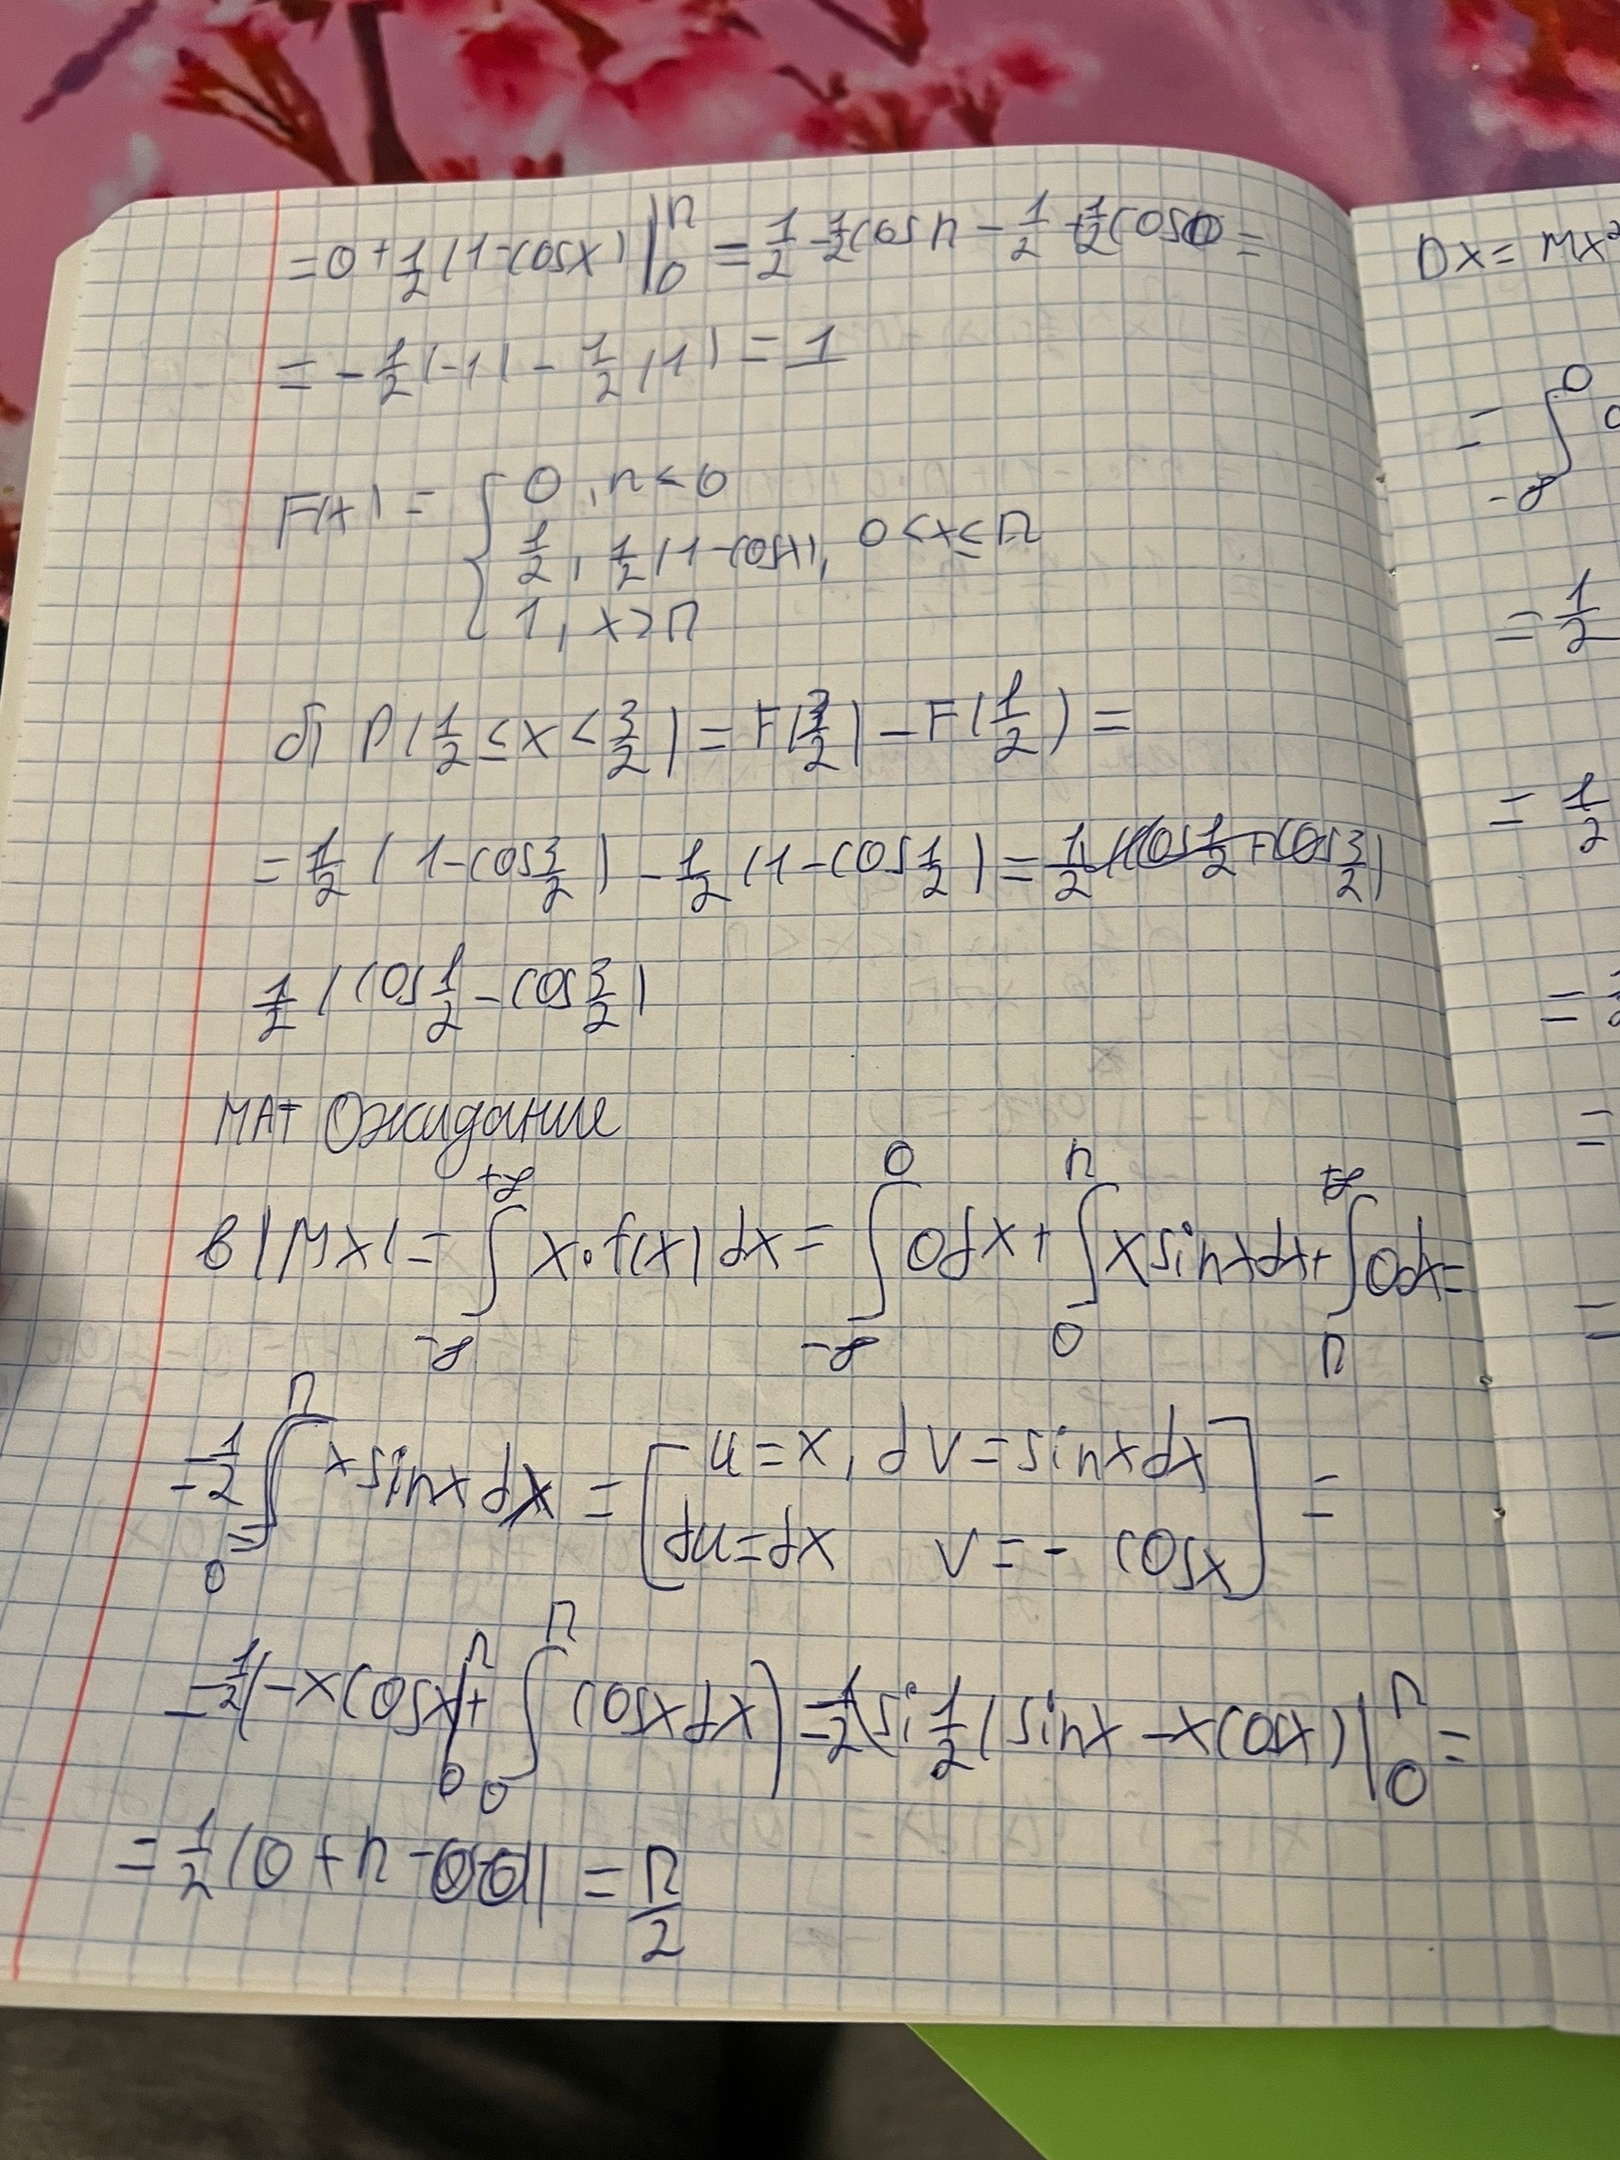 = 0 + 1/2 (1-cosx) |₀^π = 1/2 - 1/2 cos π - 1/2 + 1/2 cos 0 =
= - 1/2 (-1) - 1/2 (1) = 1
F(x) = { 0, n < 0
1/2, 1/2 (1-cosx), 0 < x ≤ π
1, x > π
б) P(1/2 ≤ x < 3/2) = F(3/2) - F(1/2) =
= 1/2 (1-cos 3/2) - 1/2 (1-cos 1/2) = 1/2 (cos 1/2 + cos 3/2)
1/2 (cos 1/2 - cos 3/2)
МАТ Ожидание
в) M(x) = ∫_{-∞}^{+∞} x·f(x) dx = ∫_{-∞}^0 0dx + ∫_0^π x sinx dx + ∫_π^{+∞} 0dx =
= 1/2 ∫_0^π x sinx dx = [ u = x, dv = sinx dx
du = dx v = - cosx ] =
= 1/2 (-x cosx |₀^π + ∫_0^π cosx dx) = 1/2 (si 1/2 (sinx - x cosx) |₀^π =
= 1/2 (0 + π - 0 0) = π/2
Dx = Mx²
= ∫_{-∞}^0
= 1/2
= 1/2
=
=